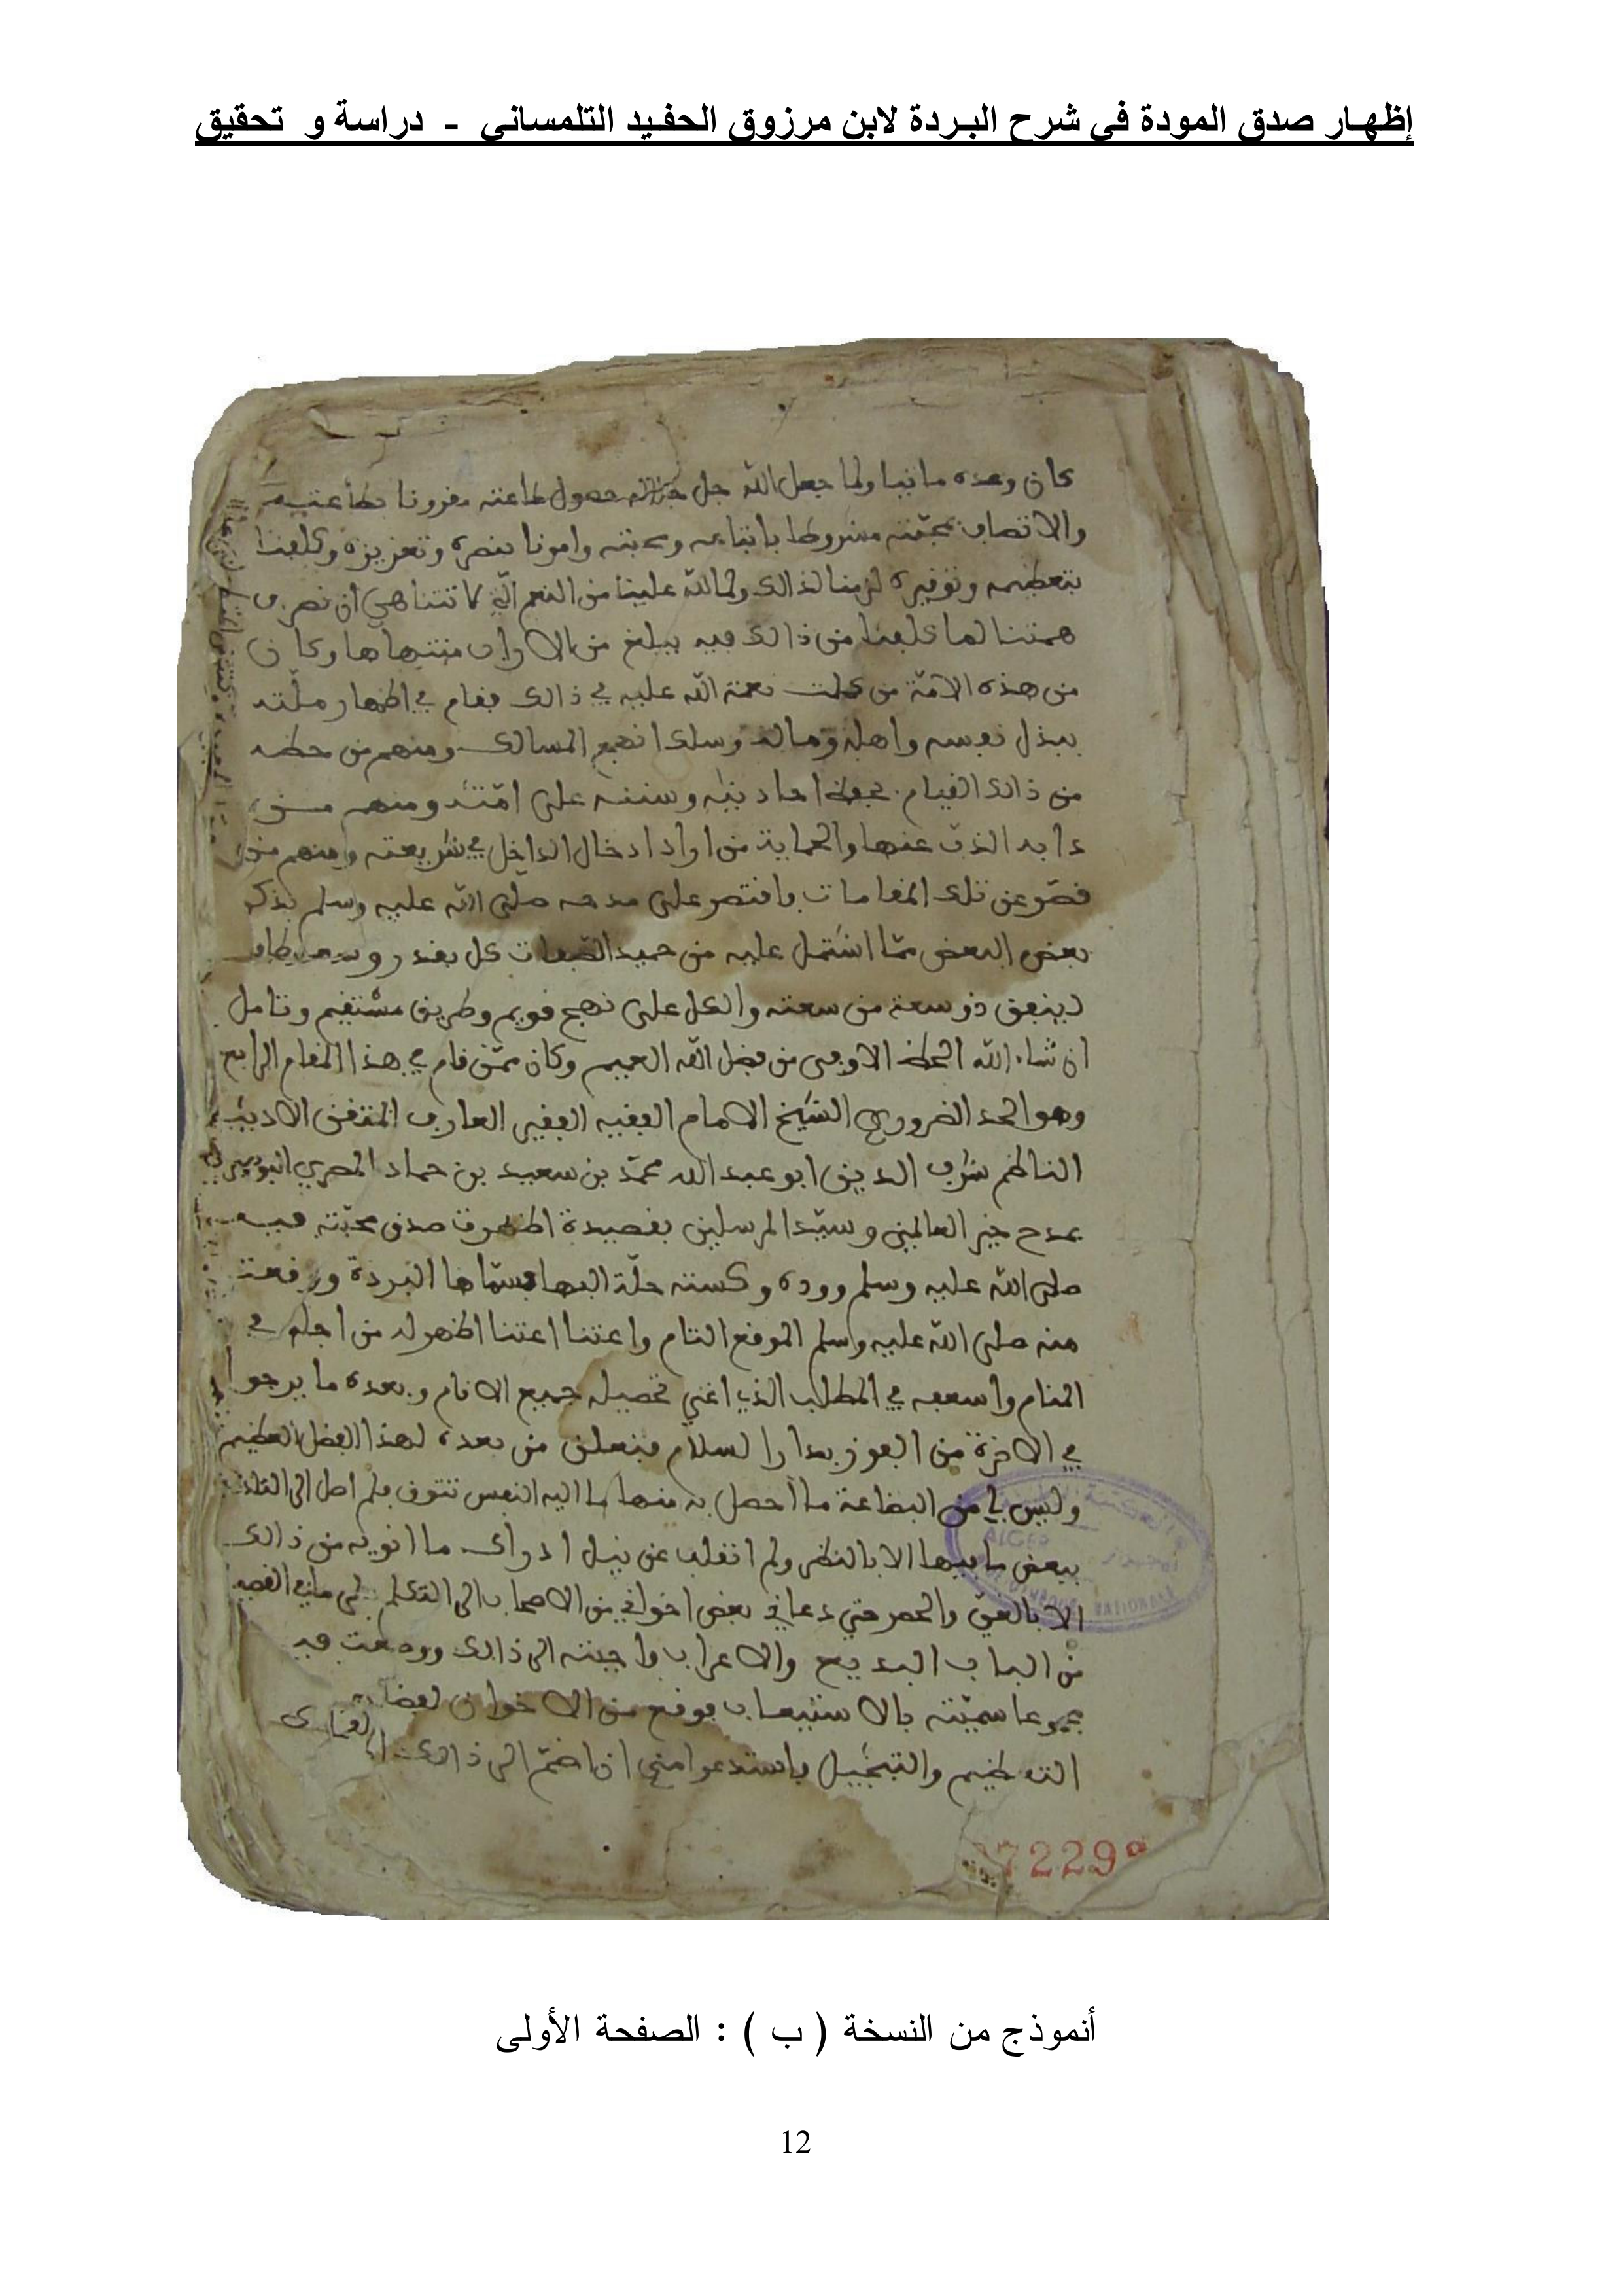 إظهـار صدق المودة في شرح البـردة لابن مرزوق الحفـيد التلمساني - دراسة و تحقيق
كان وعده ماتيا ولما جعل الله جل جلاله حصول طاعته مقرونا بطاعته
والاتصاف بمحبته مشروطا باتباعه ومحبته وامرنا بنصره وتعزيزه وكلفنا
بتعظيمه وتوقيره لزمنا لذالك ولما لله علينا من النعم التي لا تتناهى ان نصرف
همتنا لما كلفنا من ذالك فيه يبلغ من الاوان منتهاها وكان
من هذه الامة من كملت نعمة الله عليه في ذالك فقام في اظهار ملته
ببذل نفسه واهله وماله وسلك انهج المسالك ومنهم من حظه
من ذالك القيام بحفظ احاديثه وسننه على امته ومنهم من
دابه الذب عنها والحماية من اراد ادخال الداخل في شريعته ومنهم من
قصر عن تلك المقامات فاقتصر على مدحه صلى الله عليه وسلم بذكر
بعض البعض مما اشتمل عليه من حميد الصفات كل بقدر وسعه
لينفق ذو سعة من سعته والكل على نهج قويم وطريق مستقيم وتامل
ان شاء الله الحظ الاوفى من فضل الله العميم وكان ممن قام في هذا المقام الرابع
وهو الحد الضروري الشيخ الامام الفقيه الفقير العارف المتقن الاديب
الناظم شرف الدين ابو عبد الله محمد بن سعيد بن حماد المصري البوصيري
بمدح خير العالمين وسيد المرسلين بقصيدة اظهرت صدق محبته فيه
صلى الله عليه وسلم ووده وكسته حلة البها فسماها البردة ووقعت
منه صلى الله عليه وسلم الموقع التام واعتنا اعتنا اظهر له من اجله في
المنام واسعفه في المطلب الذي اغنى تحصيله جميع الانام وبعده ما يرجوا
في الاخرة من الفوز بدار السلام فتعلق من بعده لهذا الفضل العظيم
وليس لي من البضاعة ما احصل به منها ما اليه النفس تتوق فلم اصل الى التلذذ
ببعض ما فيها الا بالنظر ولم انقلب عن نيل ادراك ما انويه من ذالك
الا بالعي والحصر حتى دعاني بعض اخواني من الاصحاب الى التكلم على ما في القصيدة
من الباب البديع والاعراب واجبته الى ذالك ووضعت فيه
مجموعا سميته بالاستيعاب فوقع من الاخوان
التعظيم والتبجيل فاستدعوا مني ان اضم الى ذالك
ALGER
NATIONALE
7229
أنموذج من النسخة ( ب ) : الصفحة الأولى
12